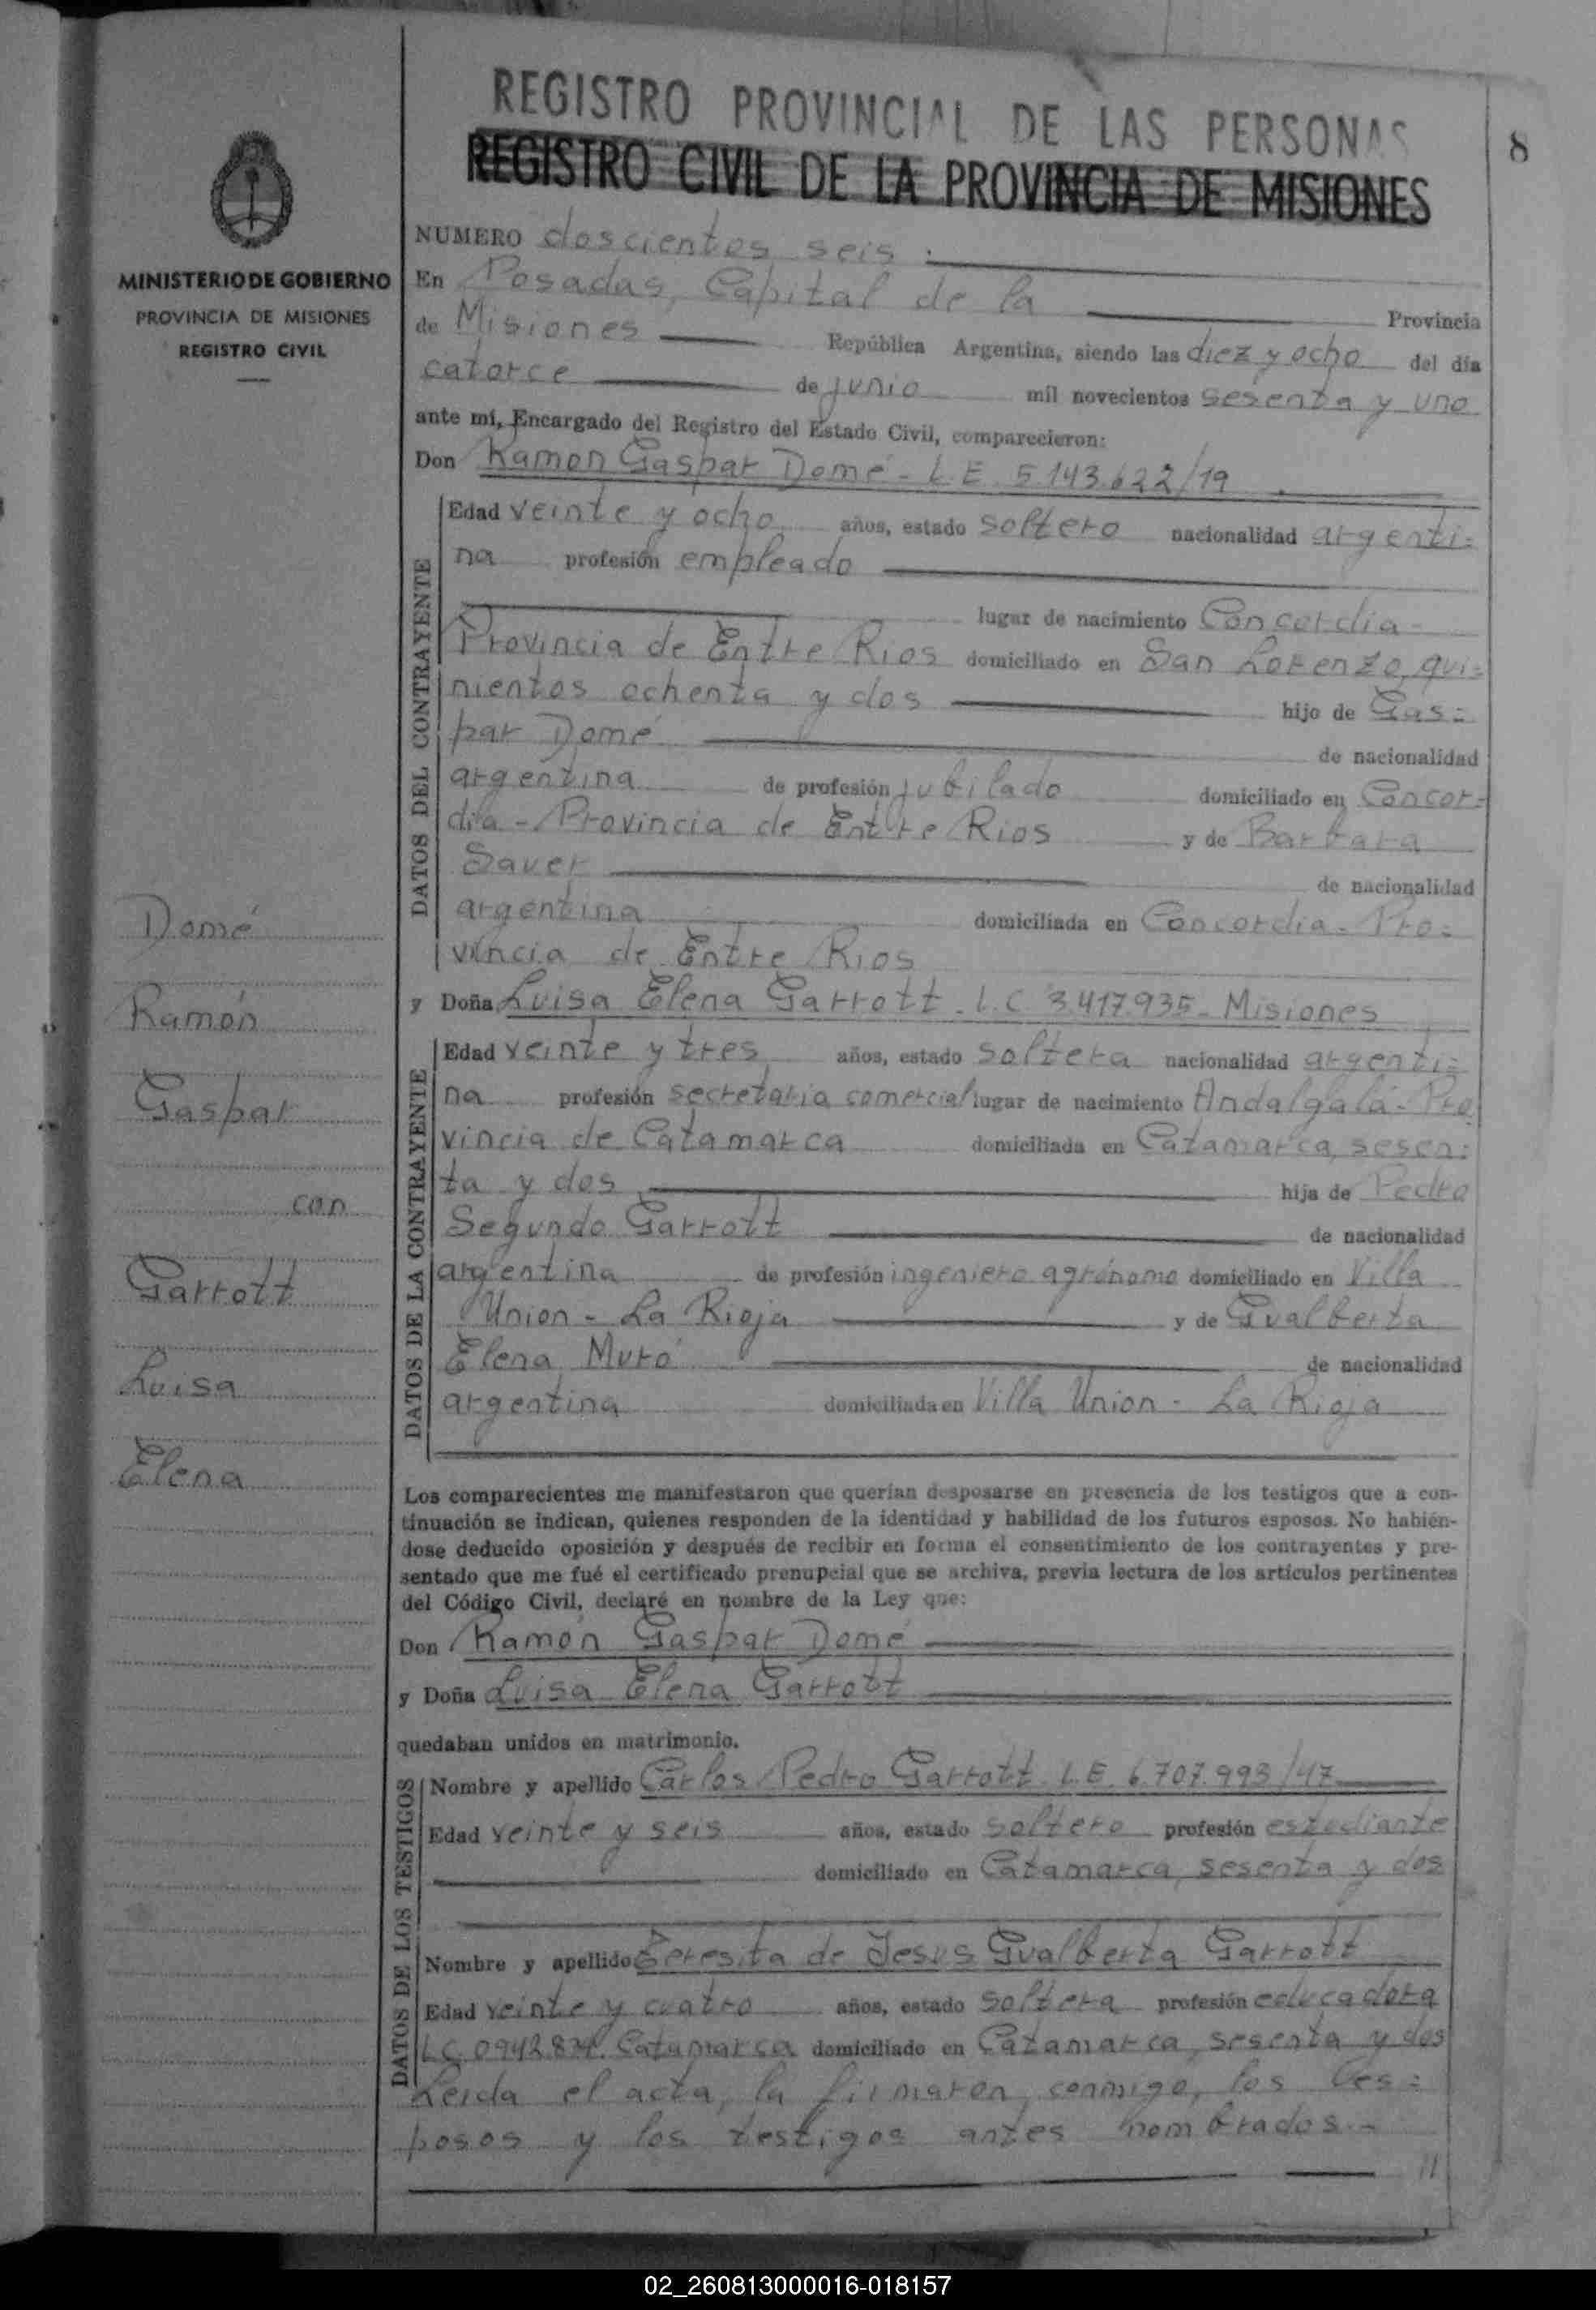 REGISTRO PROVINCIAL DE LAS PERSONAS
REGISTRO CIVIL DE LA PROVINCIA DE MISIONES
8
MINISTERIO DE GOBIERNO
PROVINCIA DE MISIONES
REGISTRO CIVIL
Domé
Ramón
Gaspar
con
Garrott
Luisa
Elena
NUMERO doscientos seis.
En Posadas, Capital de la Provincia
de Misiones República Argentina, siendo las diez y ocho del día
catorce de junio mil novecientos sesenta y uno
ante mí, Encargado del Registro del Estado Civil, comparecieron:
Don Ramón Gaspar Domé - L.E. 5.143.622/19
DATOS DEL CONTRAYENTE
Edad veinte y ocho años, estado soltero nacionalidad argenti=
na profesión empleado
lugar de nacimiento Concordia-
Provincia de Entre Rios domiciliado en San Lorenzo, qui=
nientos ochenta y dos hijo de Gas=
par Domé de nacionalidad
argentina de profesión jubilado domiciliado en Concor=
dia - Provincia de Entre Rios y de Barbara
Sauer de nacionalidad
argentina domiciliada en Concordia - Pro=
vincia de Entre Rios
y Doña Luisa Elena Garrott - L.C. 3.417.935 - Misiones
DATOS DE LA CONTRAYENTE
Edad veinte y tres años, estado soltera nacionalidad argenti=
na profesión secretaria comercial lugar de nacimiento Andalgalá - Pro
vincia de Catamarca domiciliada en Catamarca, sesen=
ta y dos hija de Pedro
Segundo Garrott de nacionalidad
argentina de profesión ingeniero agrónomo domiciliado en Villa
Union - La Rioja y de Gualberta
Elena Muró de nacionalidad
argentina domiciliada en Villa Union - La Rioja
Los comparecientes me manifestaron que querían desposarse en presencia de los testigos que a con-
tinuación se indican, quienes responden de la identidad y habilidad de los futuros esposos. No habién-
dose deducido oposición y después de recibir en forma el consentimiento de los contrayentes y pre-
sentado que me fué el certificado prenupcial que se archiva, previa lectura de los artículos pertinentes
del Código Civil, declaré en nombre de la Ley que:
Don Ramón Gaspar Domé
y Doña Luisa Elena Garrott
quedaban unidos en matrimonio.
DATOS DE LOS TESTIGOS
Nombre y apellido Carlos Pedro Garrott L.E. 6.707.993/47
Edad veinte y seis años, estado soltero profesión estudiante
domiciliado en Catamarca, sesenta y dos
Nombre y apellido Teresita de Jesus Gualberta Garrott
Edad veinte y cuatro años, estado soltera profesión educadora
L.C. Catamarca domiciliado en Catamarca, sesenta y dos
Leida el acta, la firmaron, conmigo, los es=
posos y los testigos antes nombrados.-
02_260813000016-018157